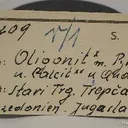 409 1/1 S.
Oligonit m.
u. Calcit u.
Stari Trg, Trepca
zedonien, Jugosla